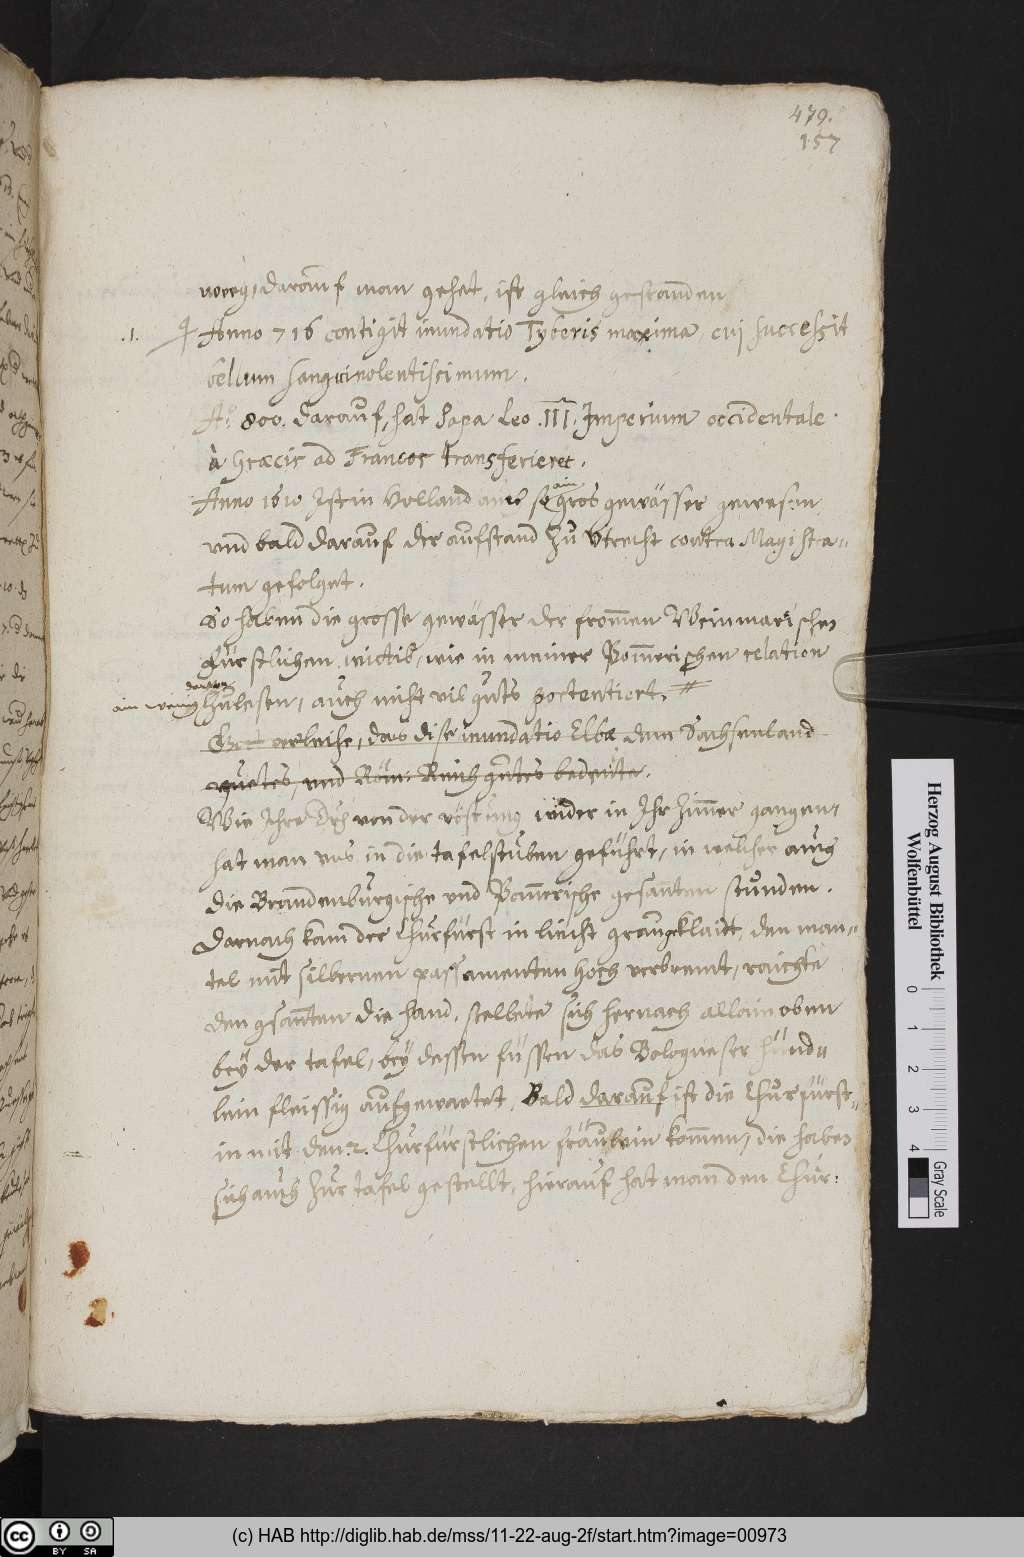 479.
157
weeg, darauf man gehet, ist gleich gestanden
.1. Anno 716 contigit inundatio Tyberis maxima, cuj successit
bellum sanguinolentissimum.
A.º 800. darauf, hat Papa Leo .III. Imperium occidentale
à Græcis ad Francos transferieret.
Anno 1610 Ist in Holland auch so ain gros gewässer gewesen
vnd bald darauf der aufstand Zu Vtrecht contra Magistra-
tum gefolget.
So haben die grosse gewässer der from̄en Weinmarischen
Fürstlichen wictib, wie in meiner Pom̄erischen relation
ain wenig daruon Zulesen, auch nicht vil guts portentiert.
Got verleihe, das dise inundatio Elbæ dem Sachsenland
guetes, vnd Röm: Reich gutes bedeute.
Wie Ihre von der röstung wider in Ihr Zim̄er gangen,
hat man vns in die tafelstuben geführt, in welcher auch
die Brandenburgische vnd Pom̄erische gesanten stunden.
Darnach kam der Churfürst in liecht graugeklaidt, den man-
tel mit silbernen passamenten hoch verbremt, raichte
den gsanten die hand, stellete sich hernach allain oben
bey der tafel, bey dessen füssen das Bologneser hünd-
lein fleissig aufgewartet. Bald darauf ist die Churfürst-
in mit den .2. Churfürstlichen fräulein kom̄en, die haben
sich auch Zur tafel gestellt, hierauf hat man den Chur:
Herzog August Bibliothek
Wolfenbüttel
0 1 2 3 4
Gray Scale
cc BY SA
(c) HAB http://diglib.hab.de/mss/11-22-aug-2f/start.htm?image=00973